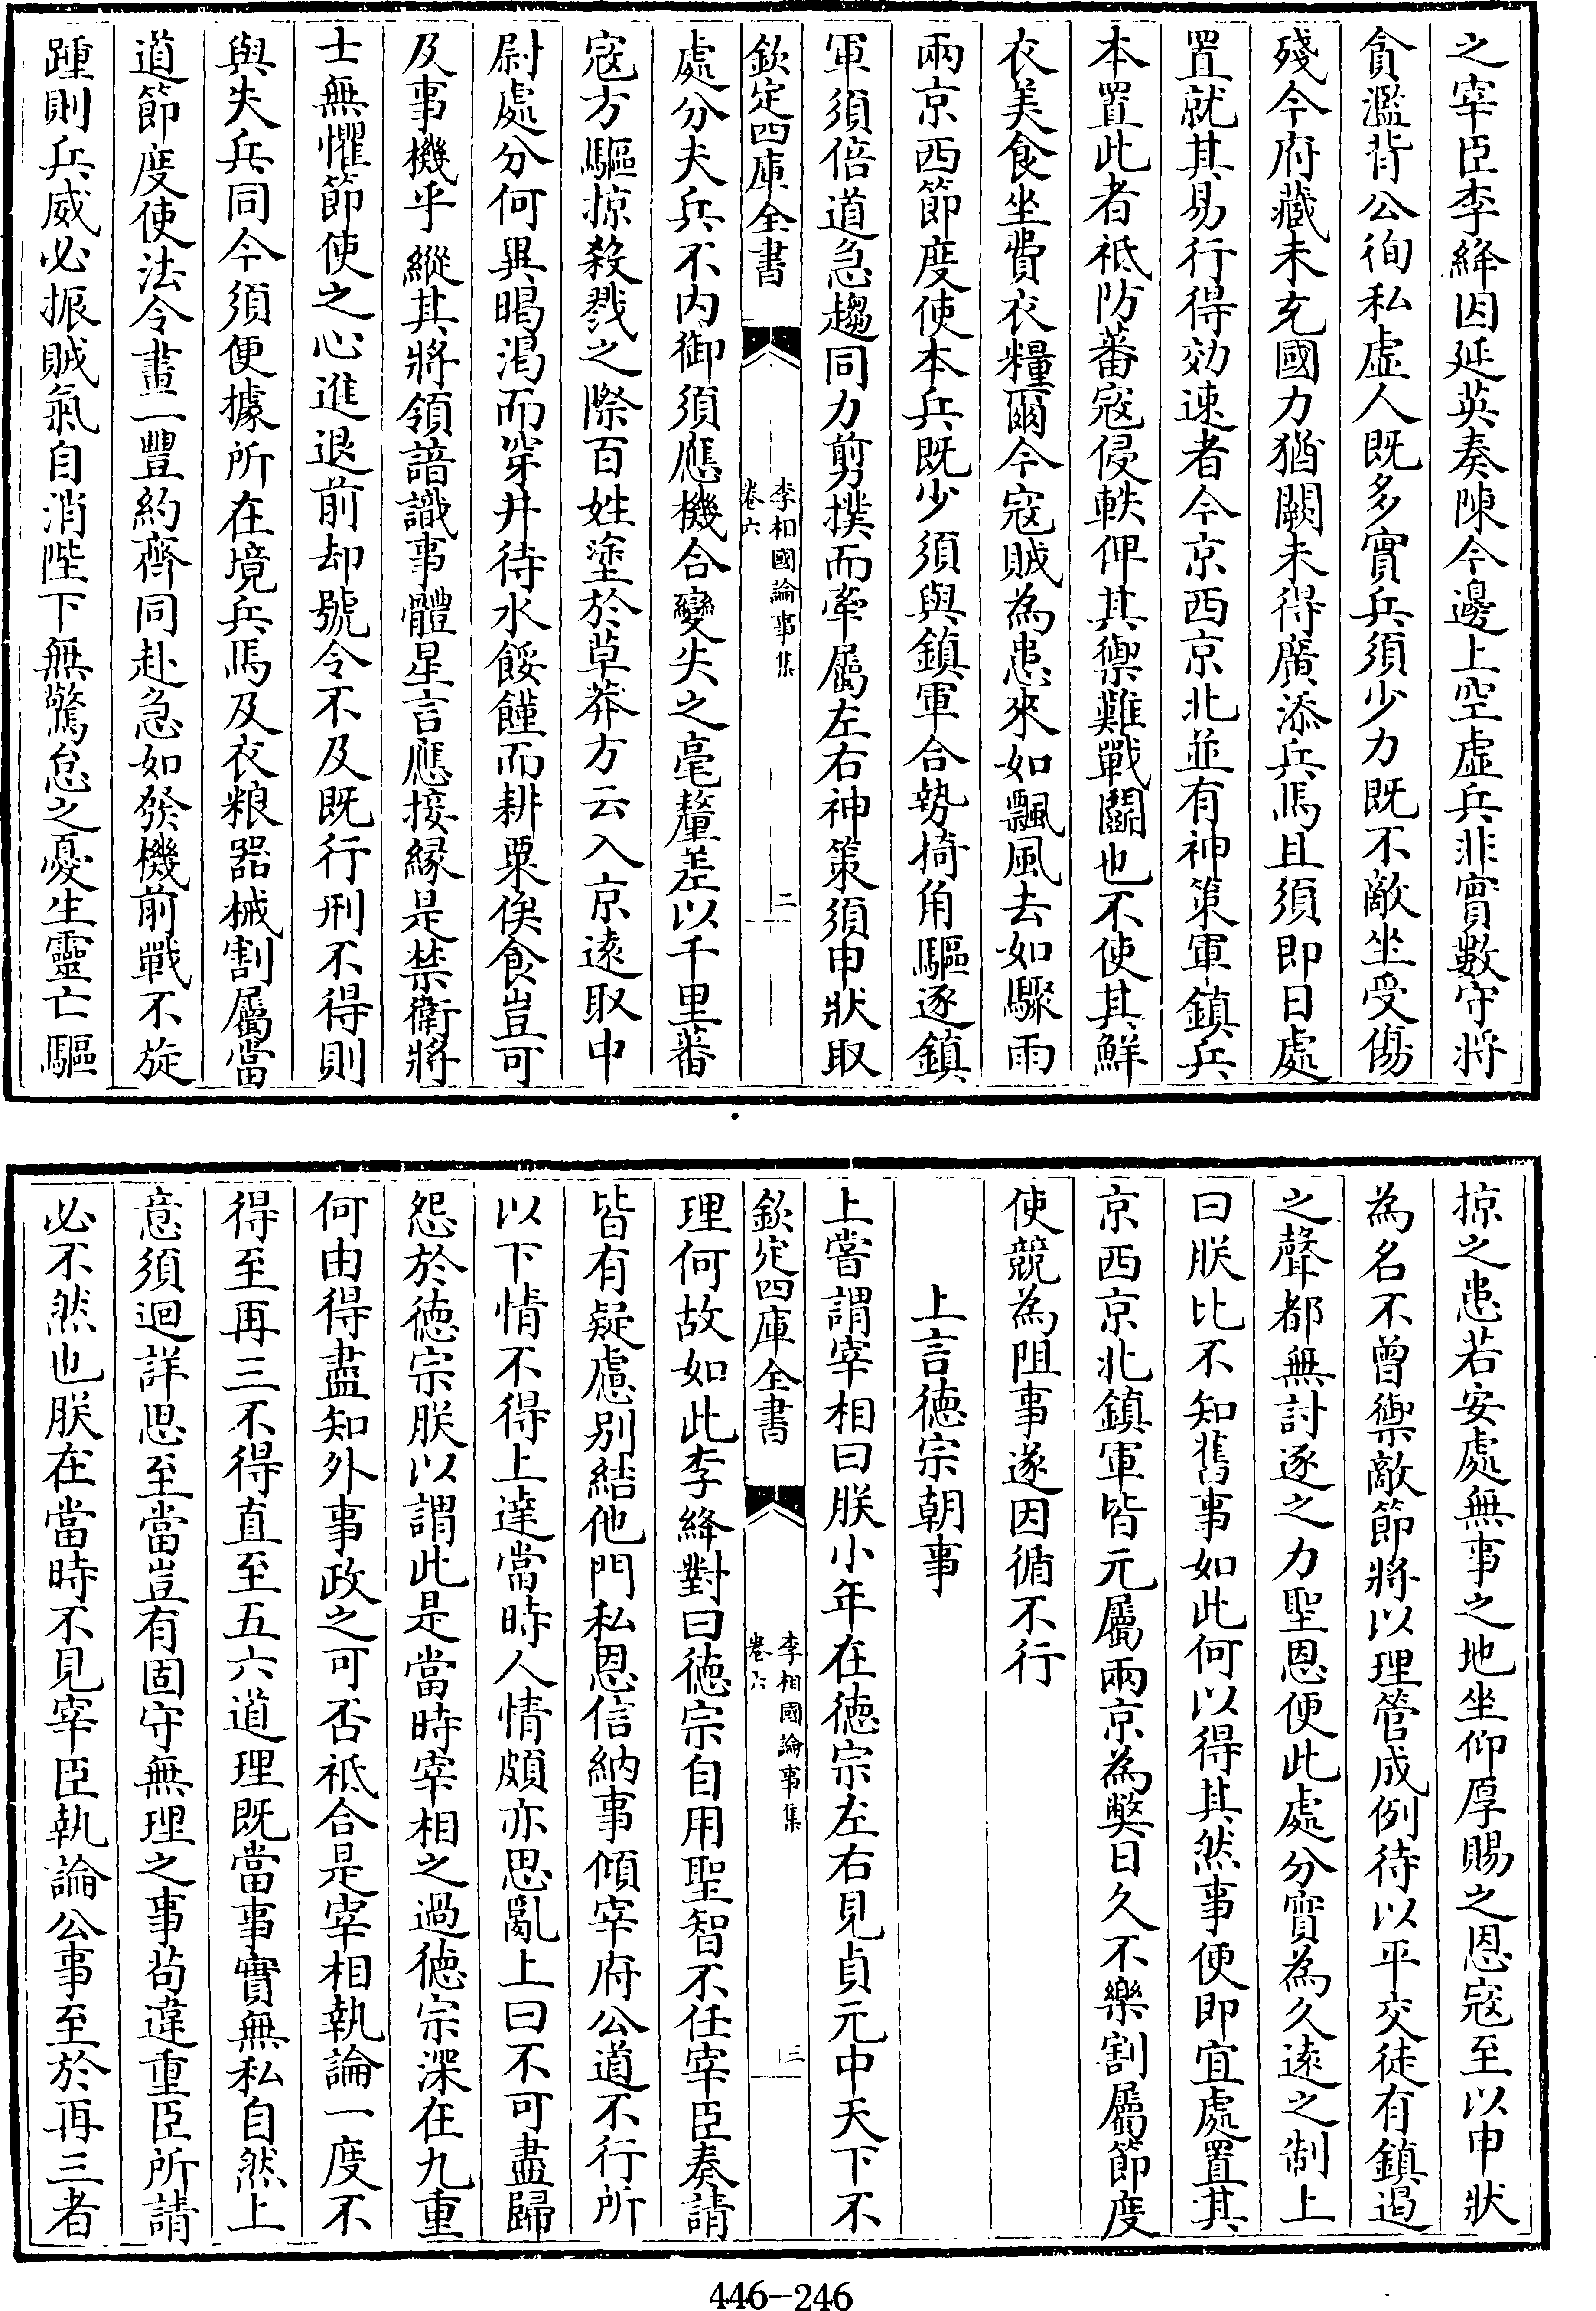 之宰臣李絳因延英奏陳今邊上空虛兵非實數守將
貪濫背公徇私虛人既多實兵須少力既不敵坐受傷
殘今府藏未充國力猶闕未得廣添兵馬且須即日處
置就其易行得効速者今京西京北並有神策軍鎮兵
本置此者祗防蕃寇侵軼俾其禦難戰鬬也不使其鮮
衣美食坐費衣糧爾今寇賊為患來如飄風去如驟雨
兩京西節度使本兵既少須與鎮軍合勢掎角驅逐鎮
軍須倍道急趨同力剪撲而牽屬左右神策須申狀取
欽定四庫全書
李相國論事集
卷六
二
處分夫兵不內御須應機合變失之毫釐差以千里蕃
寇方驅掠殺戮之際百姓塗於草莽方云入京遠取中
尉處分何異暍渴而穿井待水餒饉而耕粟俟食豈可
及事機乎縱其將領諳識事體星言應接縁是禁衛將
士無懼節使之心進退前却號令不及既行刑不得則
與失兵同今須便據所在境兵馬及衣粮器械割屬當
道節度使法令畫一豐約齊同赴急如發機前戰不旋
踵則兵威必振賊氣自消陛下無驚怠之憂生靈亡驅
掠之患若安處無事之地坐仰厚賜之恩寇至以申狀
為名不曾禦敵節將以理管成例待以平交徒有鎮遏
之聲都無討逐之力聖恩便此處分實為久遠之制上
曰朕比不知舊事如此何以得其然事便即宜處置其
京西京北鎮軍皆元屬兩京為弊日久不樂割屬節度
使競為阻事遂因循不行
上言徳宗朝事
上嘗謂宰相曰朕小年在徳宗左右見貞元中天下不
欽定四庫全書
李相國論事集
卷六
三
理何故如此李絳對曰徳宗自用聖智不任宰臣奏請
皆有疑慮別結他門私恩信納事傾宰府公道不行所
以下情不得上達當時人情頗亦思亂上曰不可盡歸
怨於徳宗朕以謂此是當時宰相之過徳宗深在九重
何由得盡知外事政之可否祗合是宰相執論一度不
得至再三不得直至五六道理既當事實無私自然上
意須迴詳思至當豈有固守無理之事苟違重臣所請
必不然也朕在當時不見宰臣執論公事至於再三者
446-246